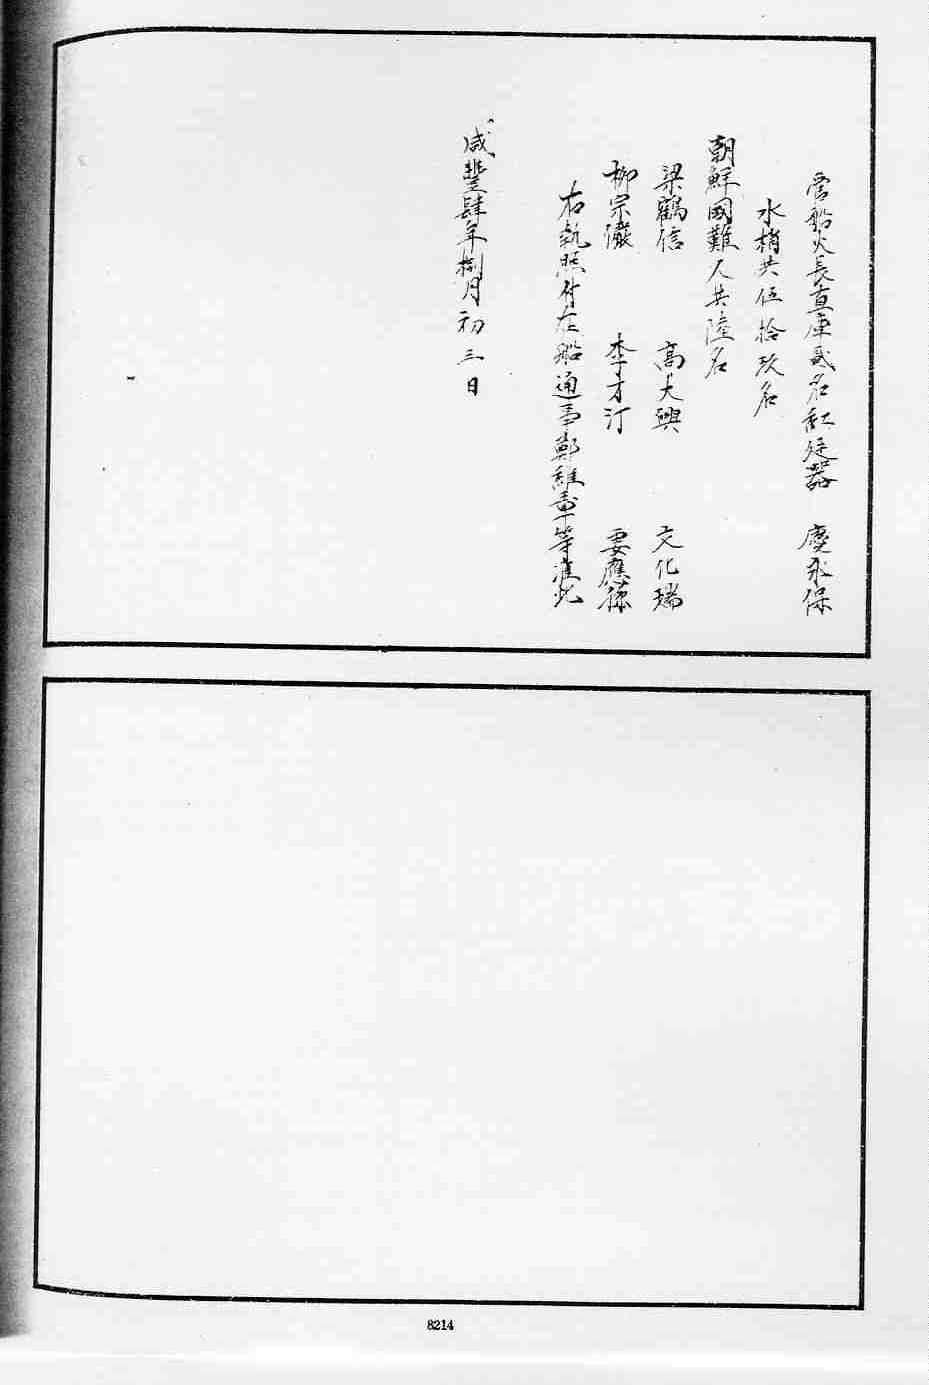 管船火長直庫貳名紅廷器 慶永保
水梢共伍拾玖名
朝鮮國難人共陸名
梁鶴信 高大興 文化瑞
柳宗瀗 李才汀 要應祿
右執照付在船通事鄭維等准此
咸豐肆年捌月初三日
8214